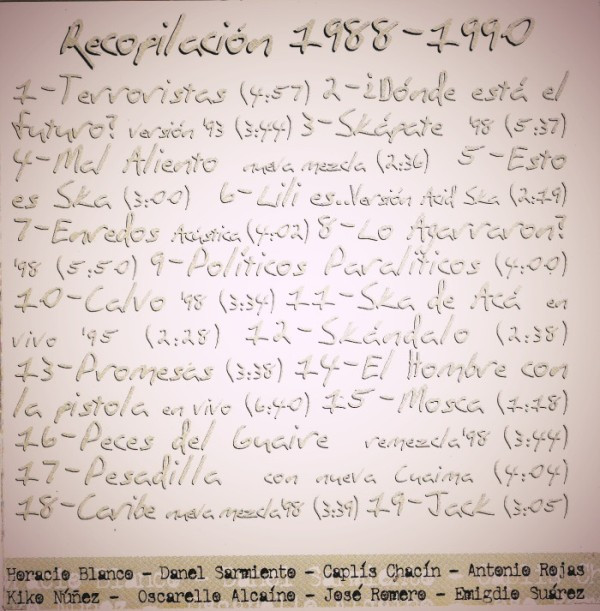 Recopilación 1988-1990
1-Terroristas (4:57) 2-¿Dónde está el
futuro? versión '93 (3:44) 3-Skápate '98 (5:37)
4-Mal Aliento nueva mezcla (2:36) 5-Esto
es Ska (3:00) 6-Lili es..Versión Acid Ska (2:19)
7-Enredos Acústica (4:02) 8-Lo Agarraron?
'98 (5:50) 9-Políticos Paralíticos (4:00)
10-Calvo '98 (3:34) 11-Ska de Acá en
vivo '95 (2:28) 12-Skándalo (2:38)
13-Promesas (3:38) 14-El Hombre con
la pistola en vivo (6:40) 15-Mosca (1:18)
16-Peces del Guaire remezcla'98 (3:44)
17-Pesadilla con nueva Cuaima (4:04)
18-Caribe nueva mezcla'98 (3:39) 19-Jack (3:05)
Horacio Blanco - Danel Sarmiento - Caplís Chacín - Antonio Rojas
Kiko Núñez - Oscarello Alcaíno - José Romero - Emigdio Suárez